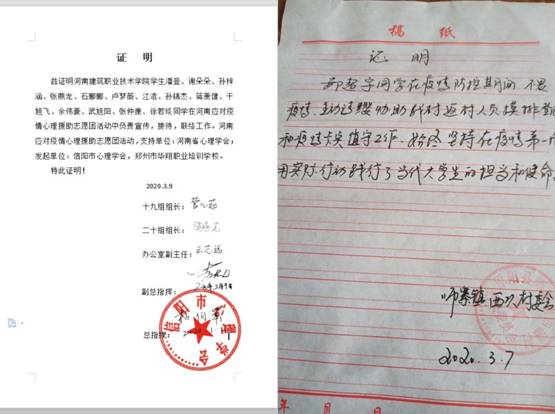 证 明
兹证明河南建筑职业技术学院学生潘登、谢朵朵、孙梓
涵、张燕龙、石娜娜、卢梦薇、江浩、孙锦杰、蒋萧僮、干
旭飞、余伟豪、武旭阳、张仲康、徐若琰同学在河南应对疫
情心理援助志愿团活动中负责宣传，接待，联络工作。河南
应对疫情心理援助志愿团活动，支持单位：河南省心理学会；
发起单位：信阳市心理学会，郑州市华翔职业培训学校。
特此证明！
2020.3.9
十九组组长：
二十组组长：
办公室副主任：
副总指挥：
总指挥：
信阳市心理学会
稿 纸
证 明
同学在疫情防控期间 不畏
疫情，主动请缨协助我村返村人员摸排登
和疫情卡点值守工作，始终坚持在疫情第一
用实际行动践行了当代大学生的担当和使命
师寨镇 村委会
2020.3.7
年 月 日